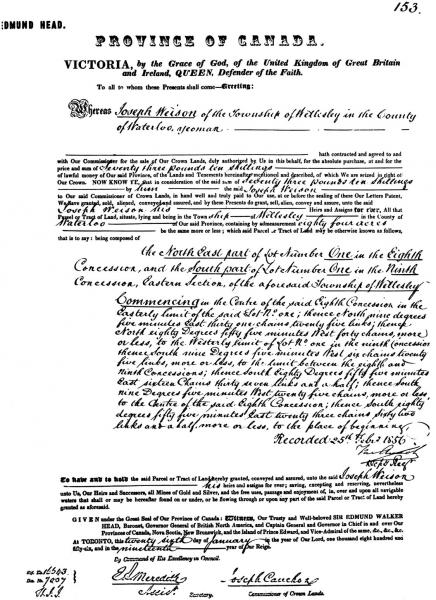 153.
EDMUND HEAD.
PROVINCE OF CANADA.
VICTORIA, by the Grace of God, of the United Kingdom of Great Britain
and Ireland, QUEEN, Defender of the Faith.
To all to whom these Presents shall come—Greeting:
Whereas Joseph Weison of the Township of Wellesley in the County
of Waterloo, yeoman
hath contracted and agreed to and
with Our Commissioner for the sale of Our Crown Lands, duly authorized by Us in this behalf, for the absolute purchase, at and for the
price and sum of Seventy three pounds ten shillings
of lawful money of Our said Province, of the Lands and Tenements hereinafter mentioned and described, of which We are seized in right of
Our Crown. NOW KNOW YE, that in consideration of the said sum of Seventy three pounds ten shillings
by him the said Joseph Weison
to Our said Commissioner of Crown Lands, in hand well and truly paid to Our use, at or before the sealing of these Our Letters Patent,
We have granted, sold, aliened, conveyed and assured, and by these Presents do grant, sell, alien, convey and assure, unto the said
Joseph Weison his Heirs and Assigns for ever, All that
Parcel or Tract of Land, situate, lying and being in the Township of Wellesley in the County of
Waterloo of Our said Province, containing by admeasurement eighty four acres
be the same more or less; which said Parcel or Tract of Land may be otherwise known as follows,
that is to say: being composed of
the North East part of Lot Number One in the Eighth
Concession, and the South part of Lot Number One in the Ninth
Concession, Eastern Section, of the aforesaid Township of Wellesley
Commencing in the Centre of the said Eighth Concession in the
Easterly limit of the said Lot No. one; thence North nine degrees
five minutes East thirty one chains, twenty five links; thence
North eighty Degrees fifty five minutes West forty chains, more
or less, to the Westerly limit of Lot No. one in the ninth Concession
thence South nine Degrees five minutes West six chains twenty
five links, more or less, to the limit between the eighth and
Ninth Concessions; thence South Eighty Degrees fifty five minutes
East sixteen Chains thirty seven links and a half; thence South
nine Degrees five minutes West twenty five chains, more or less,
to the Centre of the said Eighth Concession; thence South eighty
degrees fifty five minutes East twenty three chains sixty two
links and a half, more or less, to the place of beginning.
Recorded 25th Feby 1856
To have and to hold the said Parcel or Tract of Land hereby granted, conveyed and assured, unto the said Joseph Weison
his heirs and assigns for ever; saving, excepting and reserving, nevertheless
unto Us, Our Heirs and Successors, all Mines of Gold and Silver, and the free uses, passage and enjoyment of, in, over and upon all navigable
waters that shall or may be hereafter found on or under, or be flowing through or upon any part of the said Parcel or Tract of Land hereby
granted as aforesaid.
GIVEN under the Great Seal of Our Province of Canada: Witness, Our Trusty and Well-beloved SIR EDMUND WALKER
HEAD, Baronet, Governor General of British North America, and Captain General and Governor in Chief in and over Our
Provinces of Canada, Nova Scotia, New Brunswick, and the Island of Prince Edward, and Vice-Admiral of the same, &c., &c., &c.
At TORONTO, this twenty sixth day of January in the year of Our Lord, one thousand eight hundred and
fifty-six, and in the nineteenth year of Our Reign.
By Command of His Excellency in Council.
E. A. Meredith
Secretary.
Joseph Cauchon
Commissioner of Crown Lands.